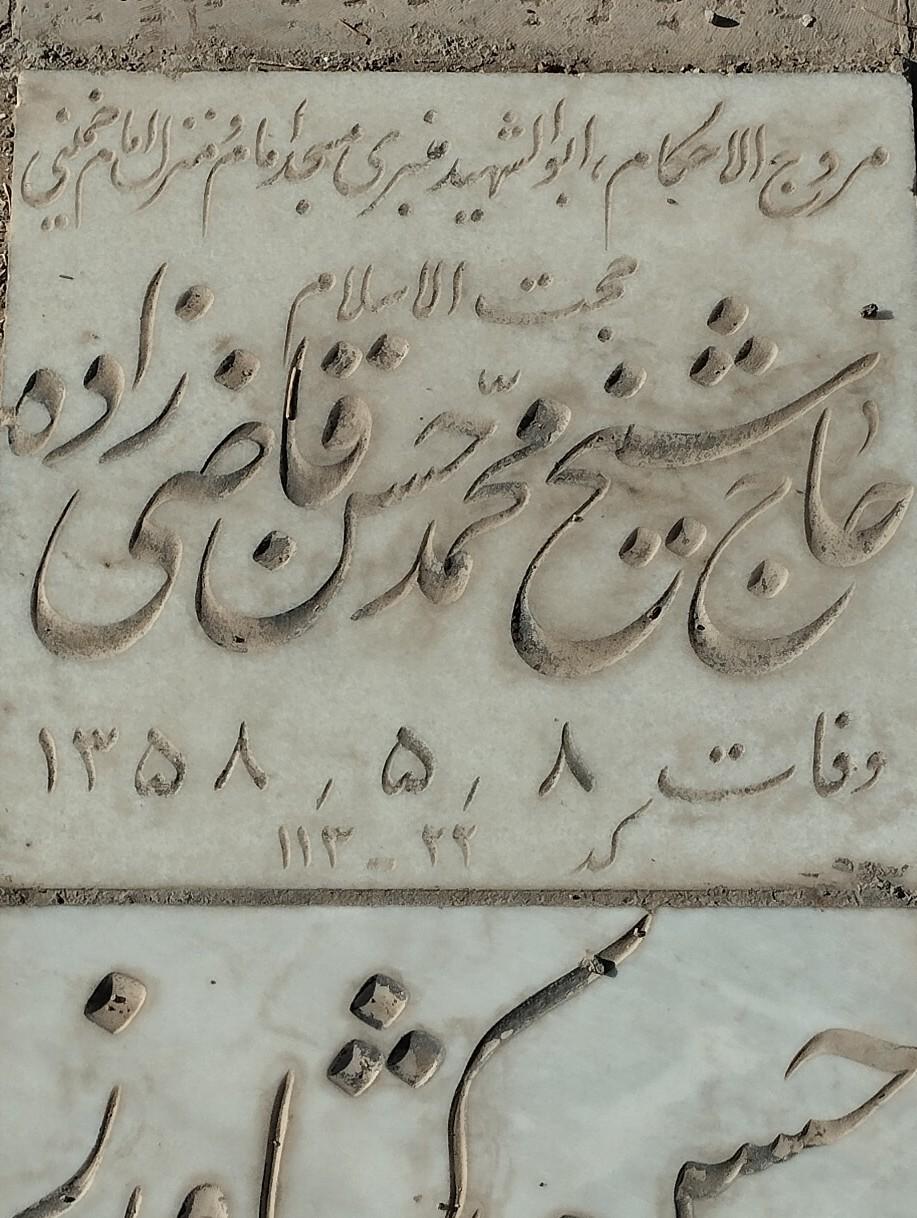 مروج الاحکام، ابوالشهید منبری مسجد امام و منزل امام خمینی
حجت الاسلام
حاج شیخ محمّد حسن قاضی زاده
وفات ۸ / ۵ / ۱۳۵۸
کد ۲۲ - ۱۱۳